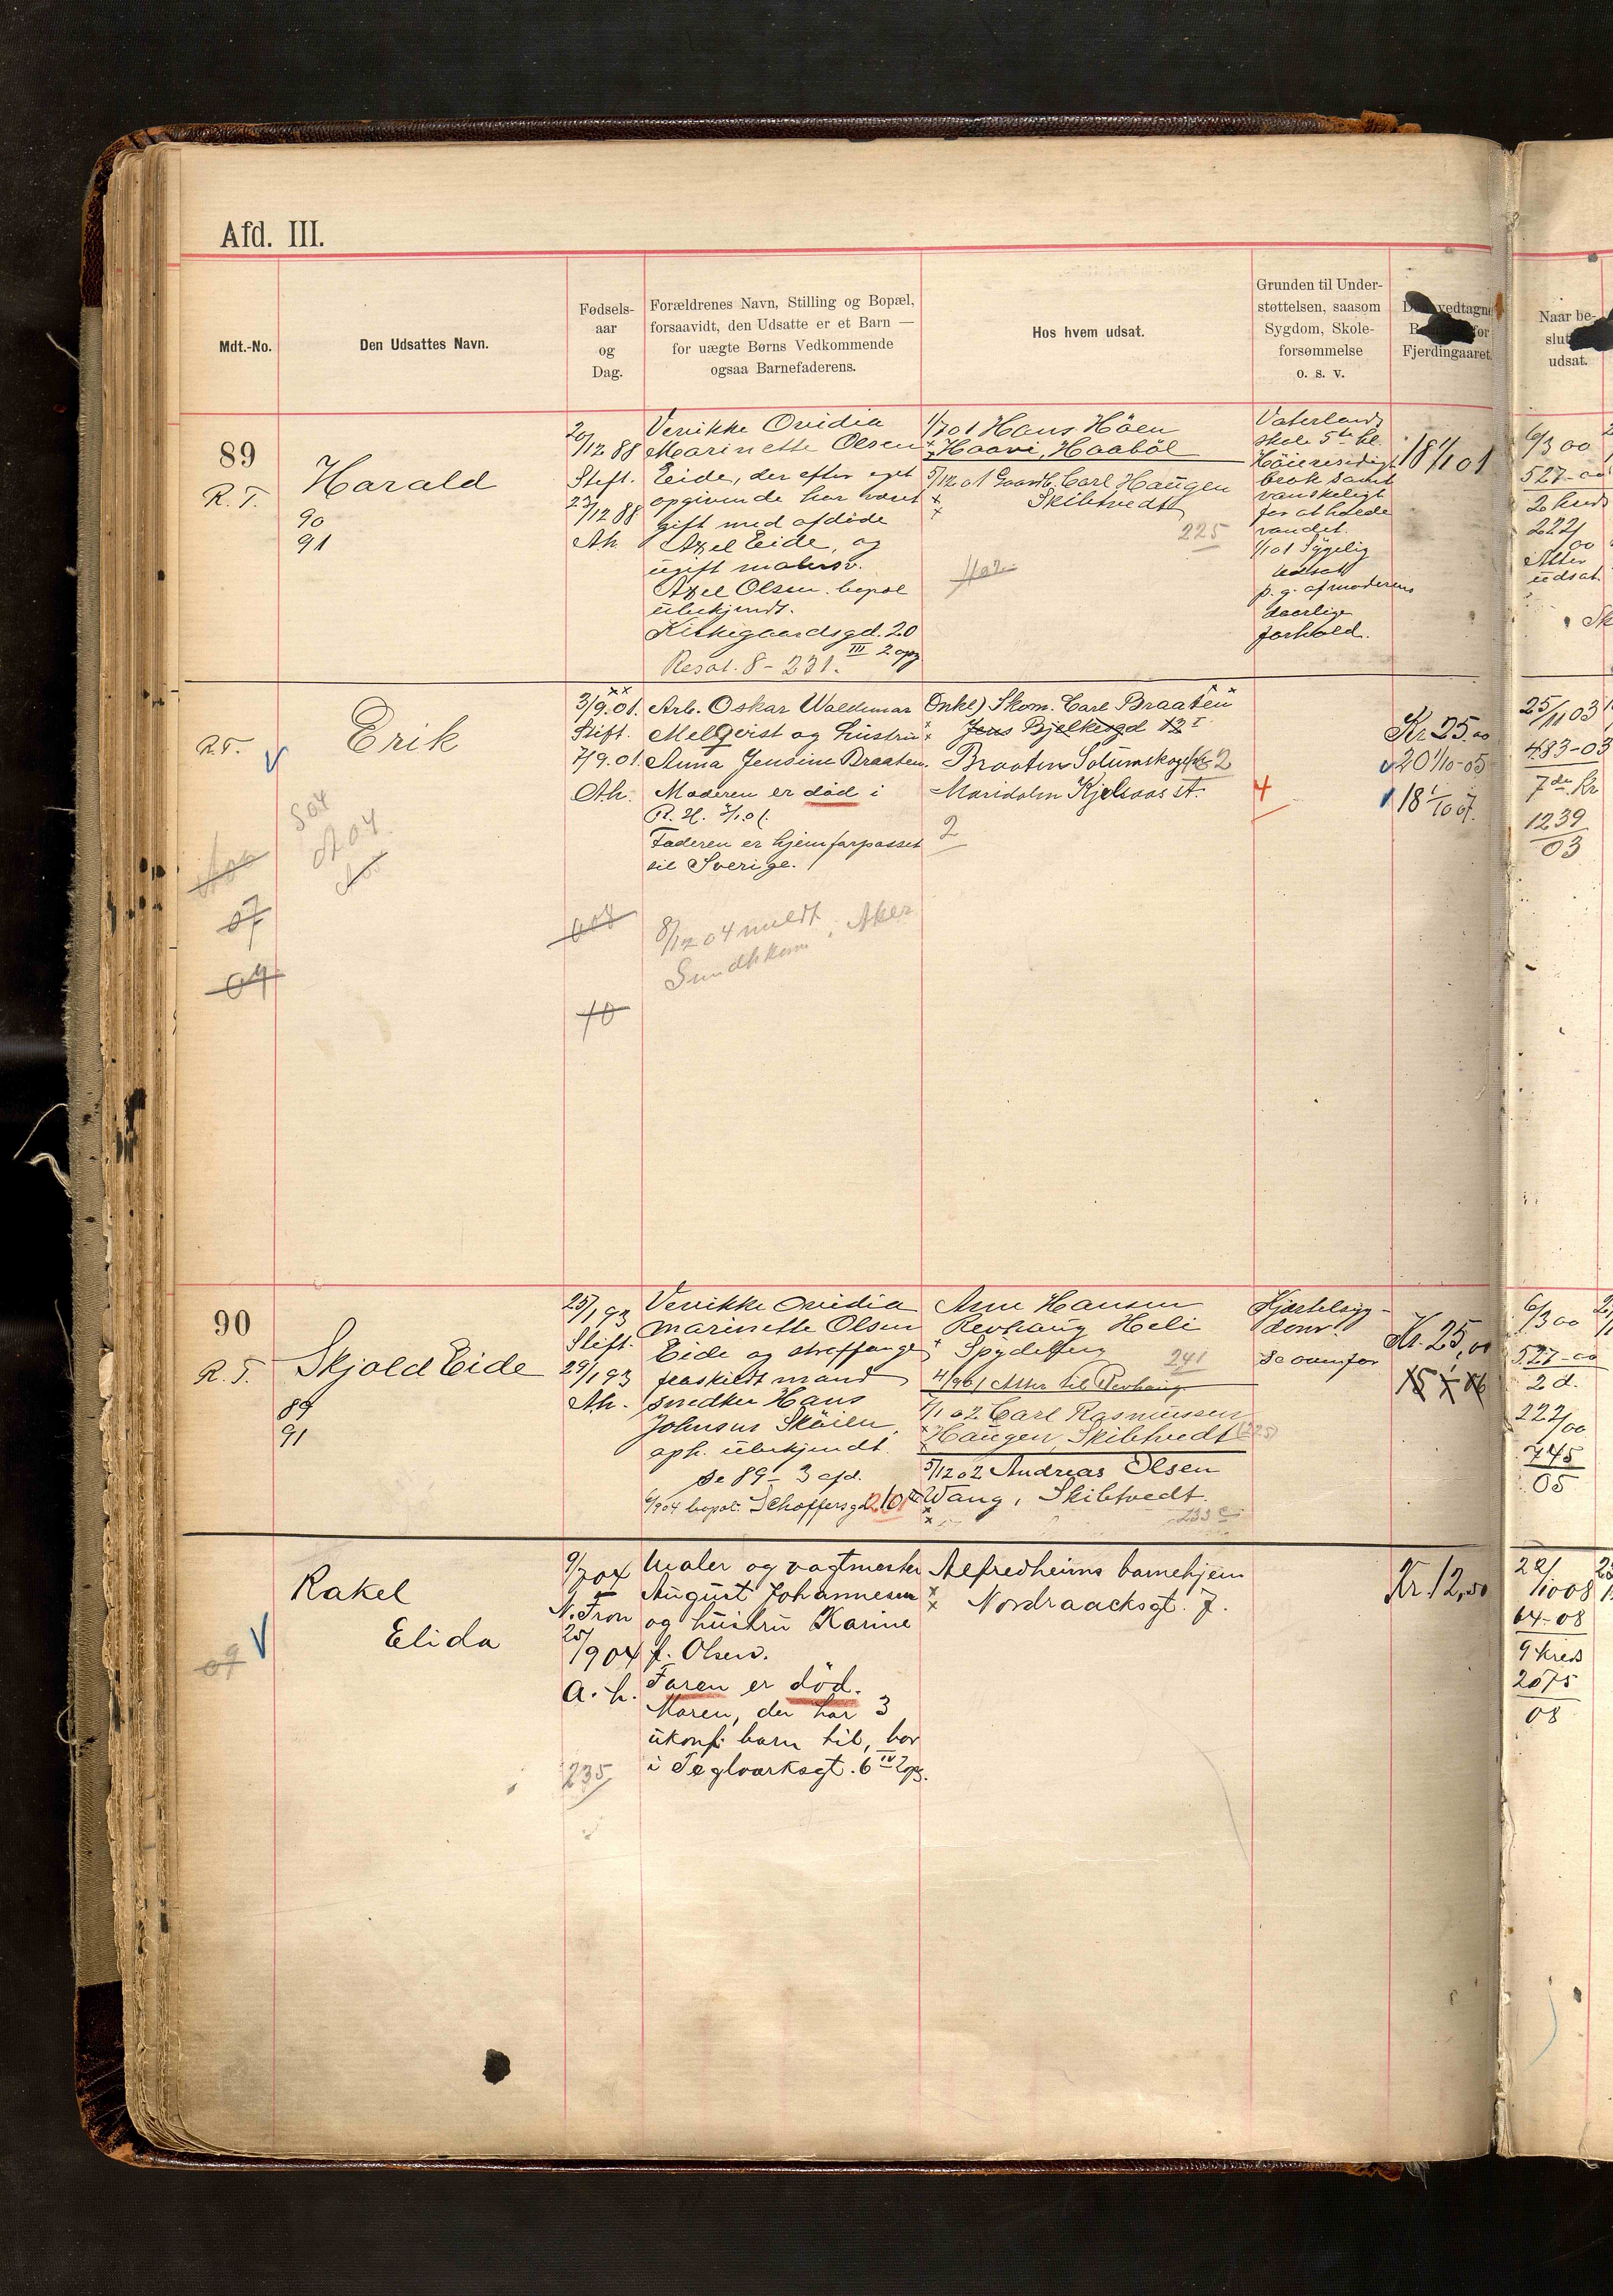 Afd. III.
Mdt.-No.
Den Udsattes Navn.
Fødsels-
aar
og
Dag.
Forældrenes Navn, Stilling og Bopæl,
forsaavidt, den Udsatte er et Barn —
for uægte Børns Vedkommende
ogsaa Barnefaderens.
Hos hvem udsat.
Grunden til Under-
støttelsen, saasom
Sygdom, Skole-
forsømmelse
o. s. v.
vedtagne
for
Fjerdingaaret.
Naar be-
slut
udsat.
89
R. T.
Harald
90
91
20/12 88
Stift.
23/12 88
Ah.
Verikke Ovidia
Marinette Olsen
Eide, der efter eget
opgivende har været
gift med afdøde
Axel Eide, og
ugift malersv.
Axel Olsen. bopæl
ubekjendt.
Kirkegaardsgd. 20
III 2 opg
Resol. 8 - 231.
1/7 01 Hans Höen
Haavi, Haaböl
5/12 01 Gaardb. Carl Haugen
Skibtvedt
225
Vaterlands
skole 5te kl.
Höieresidigt
brok samt
vanskeligt
for at holde
vandet.
1/1 01 Sygelig
Udsat
p. g. af moderens
daarlige
forhold.
18 1/1 01
6/3 00
527-00
2 kreds
222/00
Atter
udsat.
R.T.
V
Erik
S04
A 04
07
09
3/9.01.
Stift.
7/9.01.
Ah.
10
Arb. Oskar Waldemar
Melqvist og hustru
Anna Jensine Braaten.
Moderen er död i
R. H.
Faderen er hjemforpasset
til Sverige.
8/12 04 meldt Aker
Sundhkom
Onkel) Skom. Carl Braaten
Jens Bjelkesgd 12 I
Braaten Solumskogen 2
Maridalen Kjelsaas st.
4
2
Kr 25.00
20 1/10-05
18 1/10 07.
25/11 03
483-03
7de Kr
1239
03
90
R. T.
Skjold Eide
89
91
25/1 93
Stift.
29/1 93
Ah.
Verikke Ovidia
Marinette Olsen
Eide og straffange
fraskildt mand
smedker Hans
Johnsen Sköien,
oph. ubekjendt.
Se 89 - 3 afd.
6/9 04 bopæl: Schoffersgd 10 III
Arne Hansen
Revhaug Heli
Spydeberg
241
4/9 01 Atter til Revhaug
1/1 02 Carl Rasmussen
Haugen, Skibtvedt (225)
5/12 02 Andreas Olsen
Wang, Skibtvedt.
233
Hjertesyg-
dom.
Se ovenfor
Kr. 25,00
15 1/1 06
6/3 00
527-00
2 d.
222/00
745
05
Rakel
Elida
09
V
9/7 04
N. Fron
25/9 04
a. h.
235
Maler og vagtmester
August Johannesen
og hustru Karine
f. Olsen.
Faren er död.
Moren, der har 3
ukonf. barn til, bor
i Teglværksgt. 6 IV 2 opg.
Alfredheims barnehjem
Nordraacksgt. 7.
Kr. 12,50
22/10 08
64-08
9 kreds
2075
08